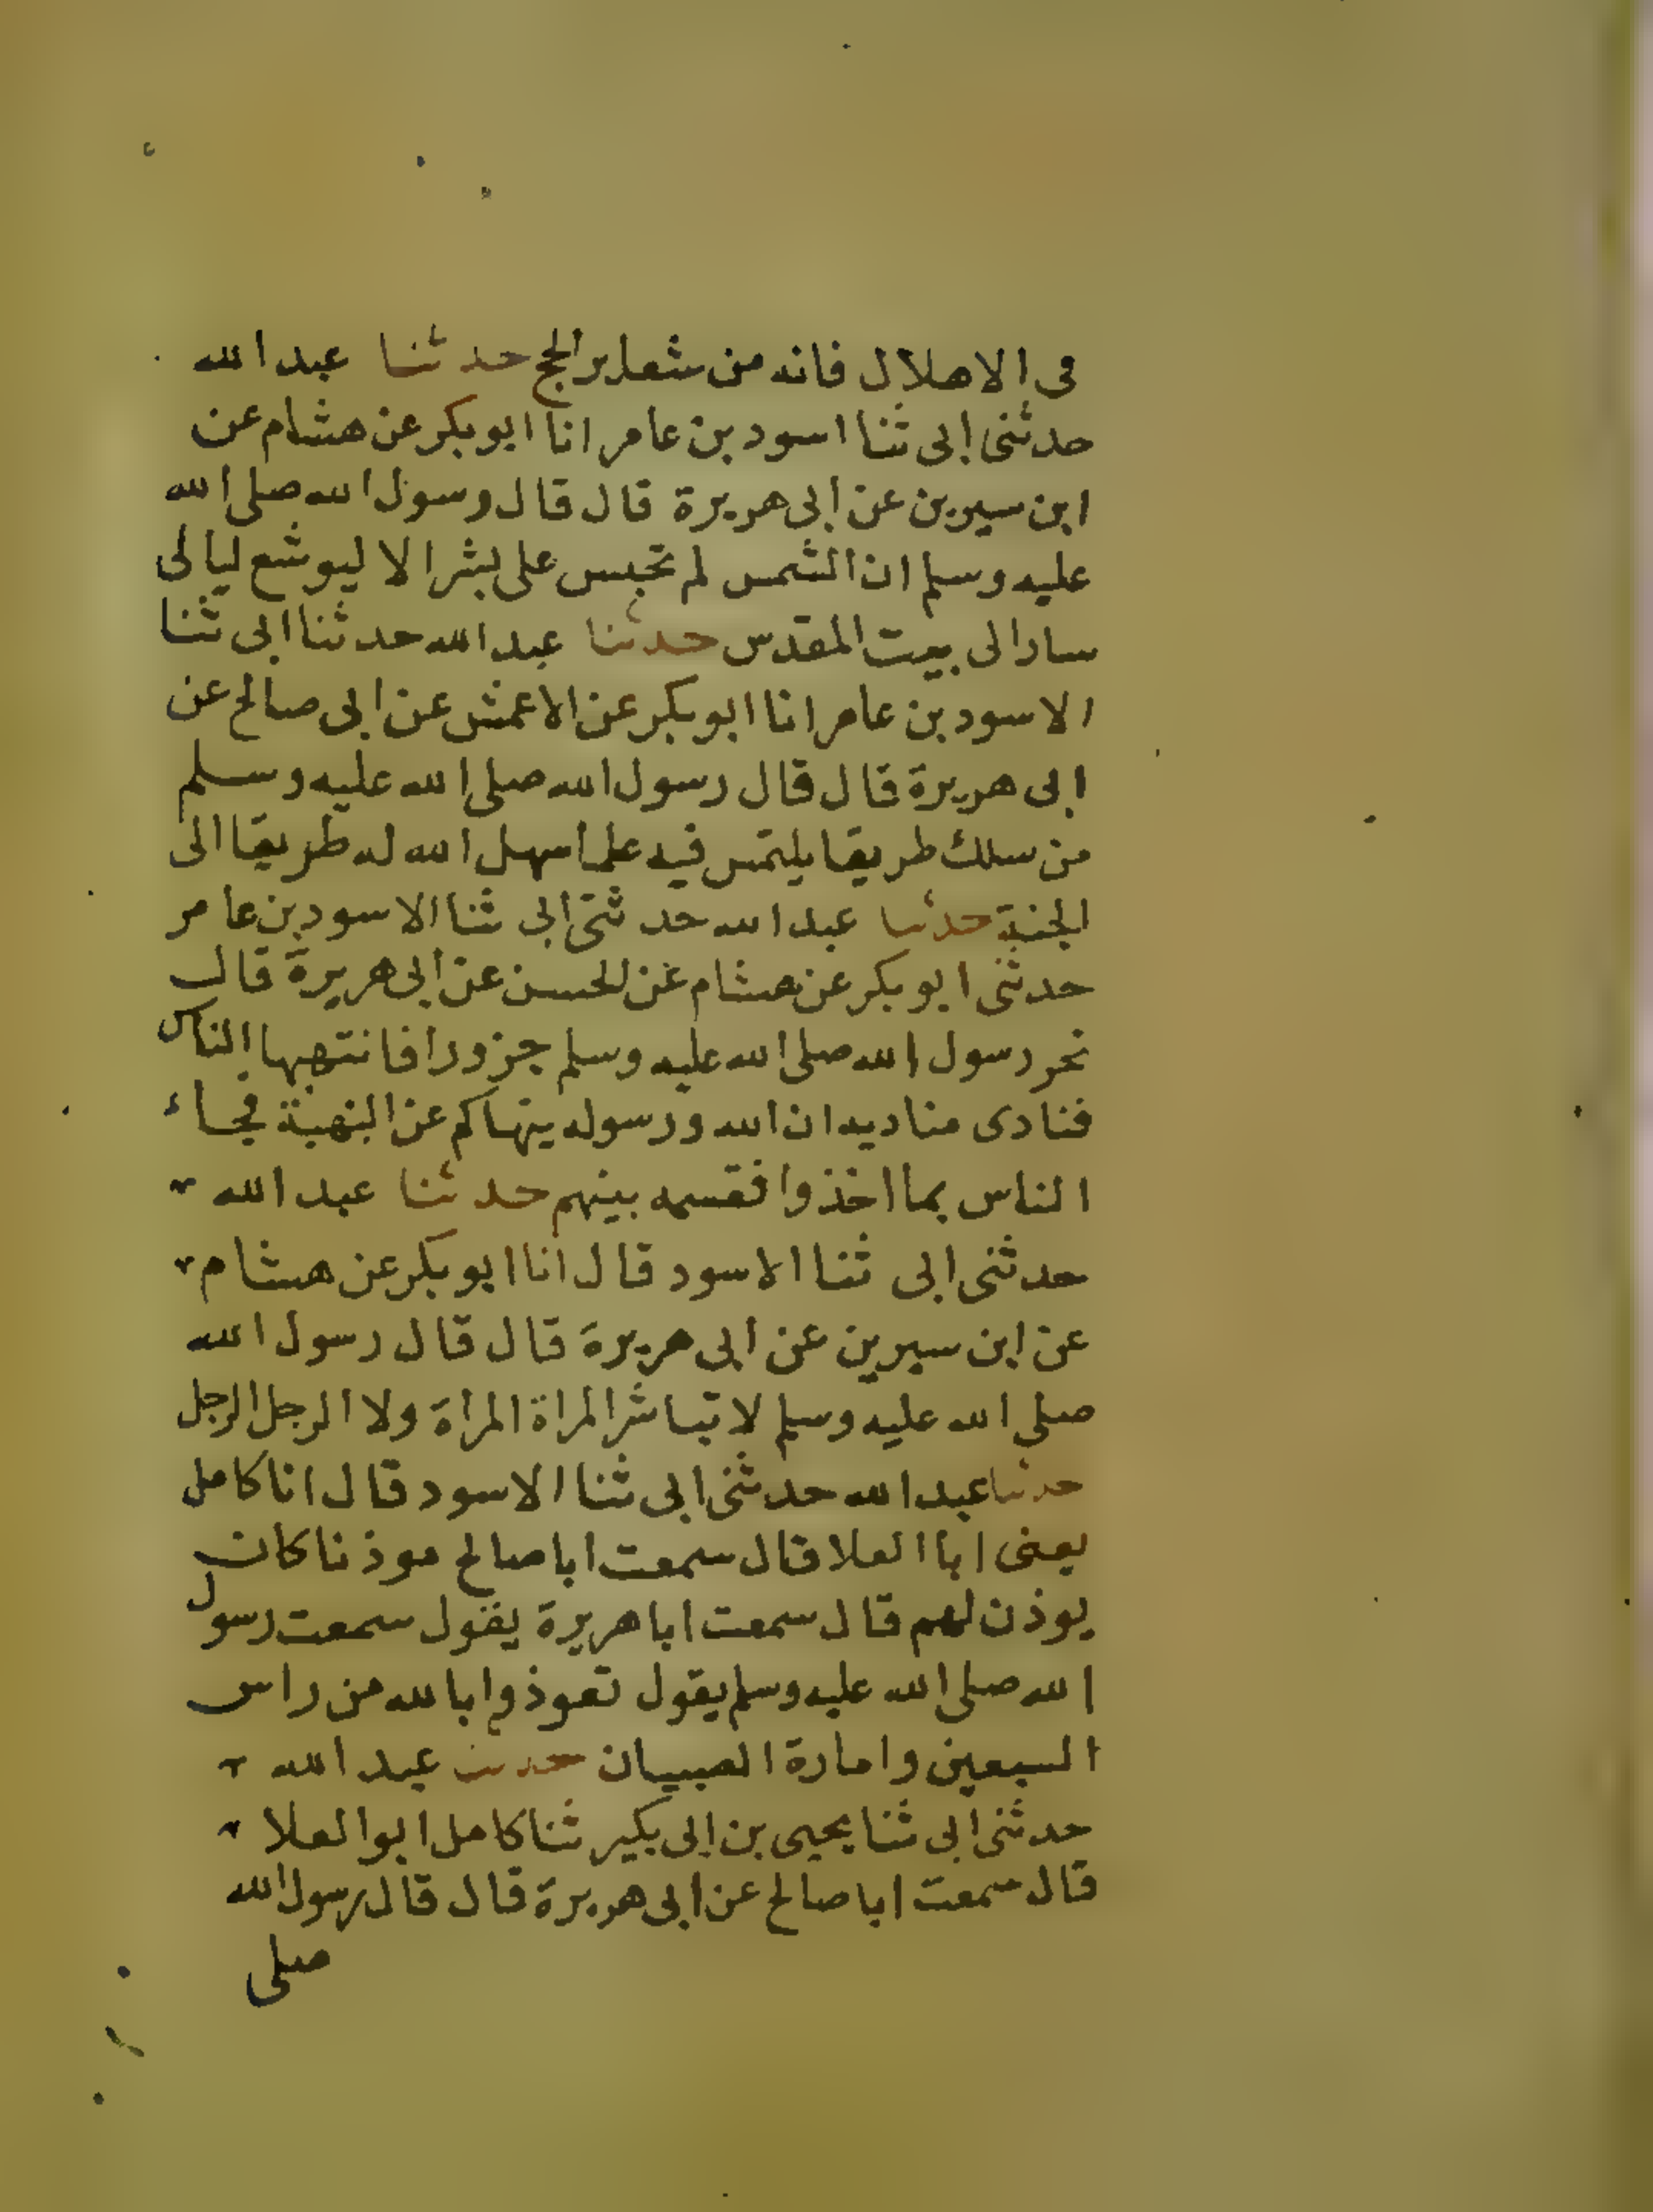 فى الاهلال فانه من شعاير الحج حدثنا عبد الله
حدثنى ابى ثنا اسود بن عامر انا ابو بكر عن هشام عن
ابن سيرين عن ابى هريرة قال قال رسول الله صلى الله
عليه وسلم ان الشمس لم تحبس على بشر الا ليوشع ليالى
سار الى بيت المقدس حدثنا عبد الله حدثنا ابى ثنا
الاسود بن عامر انا ابو بكر عن الاعمش عن ابى صالح عن
ابى هريرة قال قال رسول الله صلى الله عليه وسلم
من سلك طريقا يلتمس فيه علما سهل الله له طريقا الى
الجنة حدثنا عبد الله حدثنى ابى ثنا الاسود بن عامر
حدثنى ابو بكر عن هشام عن الحسن عن ابى هريرة قال
نحر رسول الله صلى الله عليه وسلم جزورا فانتهبها الناس
فنادى مناديه ان الله ورسوله ينهاكم عن النهبة فجاء
الناس بما اخذوا فقسمه بينهم حدثنا عبد الله
حدثنى ابى ثنا الاسود قال انا ابو بكر عن هشام
عن ابن سيرين عن ابى هريرة قال قال رسول الله
صلى الله عليه وسلم لا تباشر المراة المراة ولا الرجل الرجل
حدثنا عبد الله حدثنى ابى ثنا الاسود قال انا كامل
يعنى ابا العلا قال سمعت ابا صالح موذنا كان
يوذن لهم قال سمعت ابا هريرة يقول سمعت رسول
الله صلى الله عليه وسلم يقول تعوذوا بالله من راس
السبعين وامارة الصبيان حدثنا عبد الله
حدثنى ابى ثنا يحيى بن ابى بكير ثنا كامل ابو العلا
قال سمعت ابا صالح عن ابى هريرة قال قال رسول الله
صلى